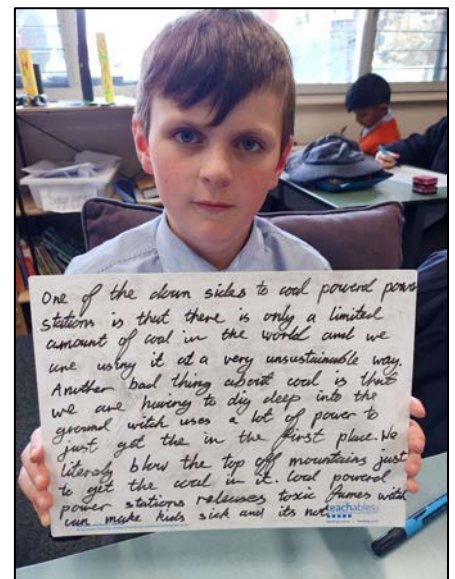 One of the down sides to coal powerd power
stations is that there is only a limited
amount of coal in the world and we
are using it at a very unsustainable way.
Another bad thing about coal is that
we are having to dig deep into the
ground witch uses a lot of power to
just get the in the first place. We
literaly blow the top off mountains just
to get the coal in it. Coal powerd
power stations releases toxic fumes witch
can make kids sick and its not
teachables